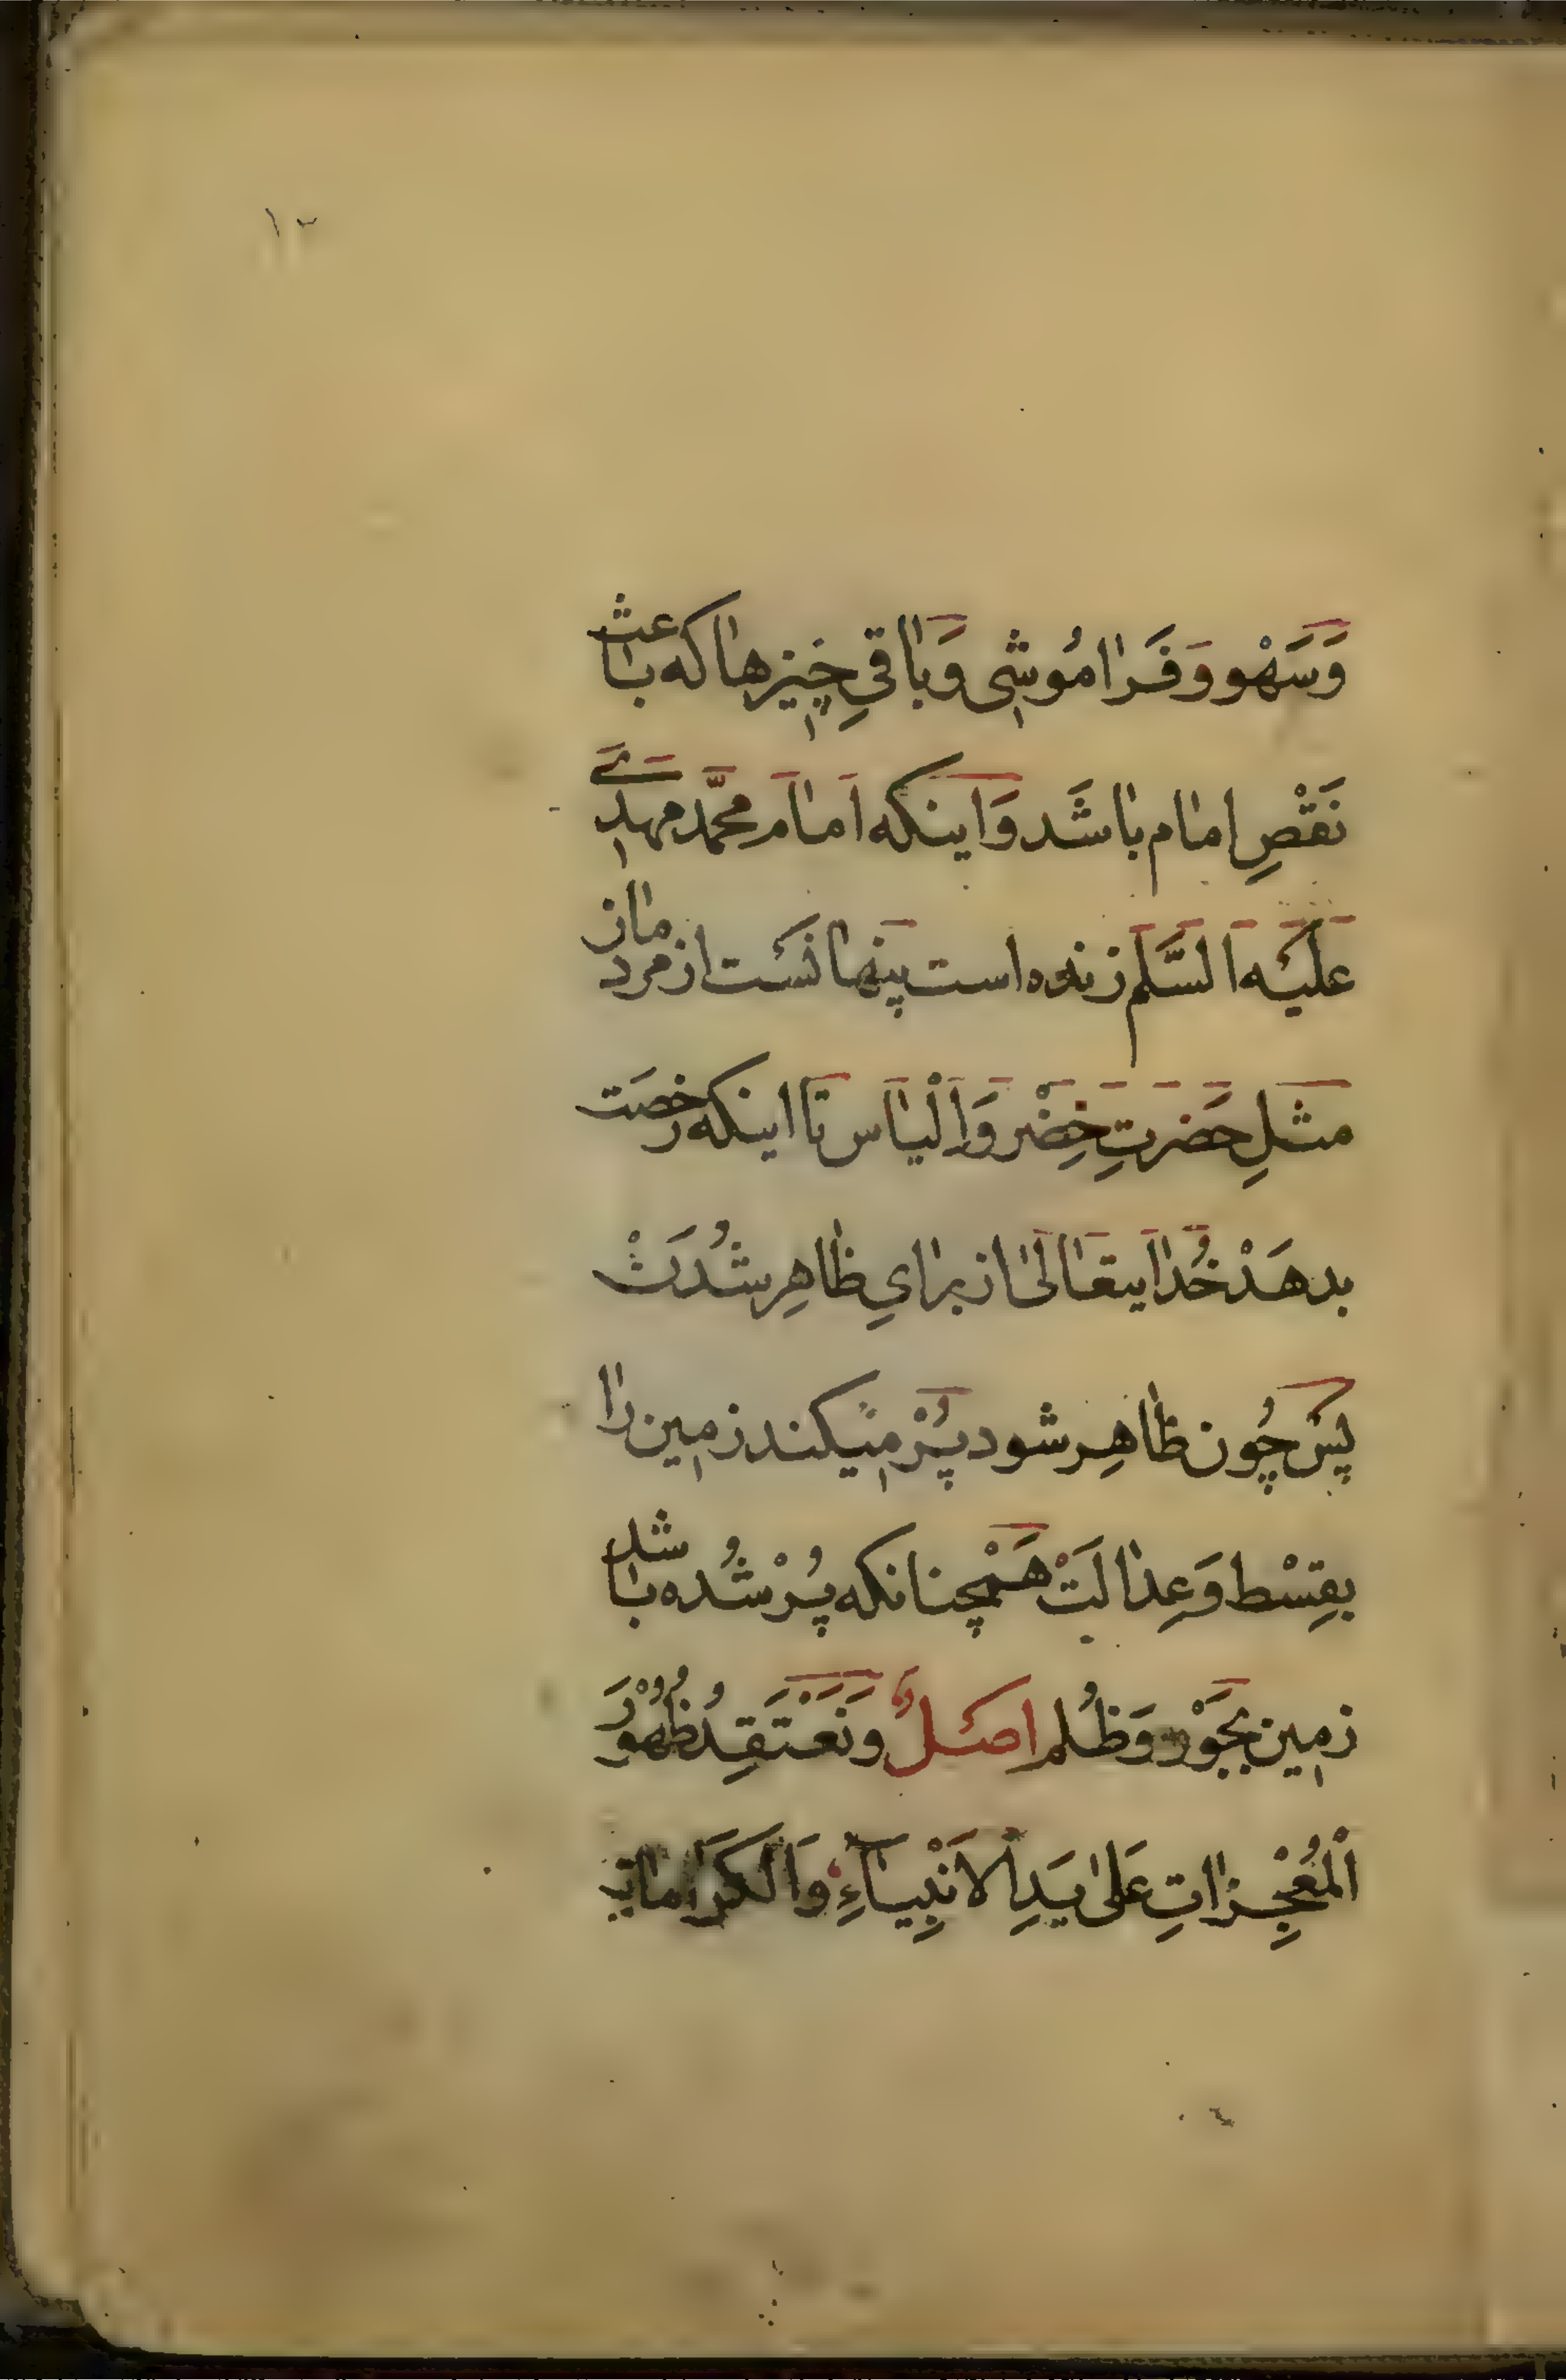 ۱۲
وَسَهْو وَفَرامُوشِی وَباقیِ چیزها که باعث
نَقْصِ امام باشَد وَاینکه اَمام محمَّد مهدی
عَلَیْه اَلسَّلم زنده است پنهانَست از مردمان
مثلِ حَضرتِ خِضْر وَاِلْیاس تا اینکه رخصَت
بدهَدْ خُدایتعَالیٰ از برایِ ظاهِر شُدَنْ
پَسْ چُون ظاهِر شود پُرْ میکند زمین را
بقِسْط وَعِدالَتْ هَمْچنانکه پُرْ شُده باشد
زمین بجَوْر وَظُلم اصَلٌ وَنَعْتَقِدُ ظُهُوْرَ
اَلْمُعْجِزاتِ عَلیٰ یَدِ الاَنْبِیَآءِ وَالکَرَاماتِ